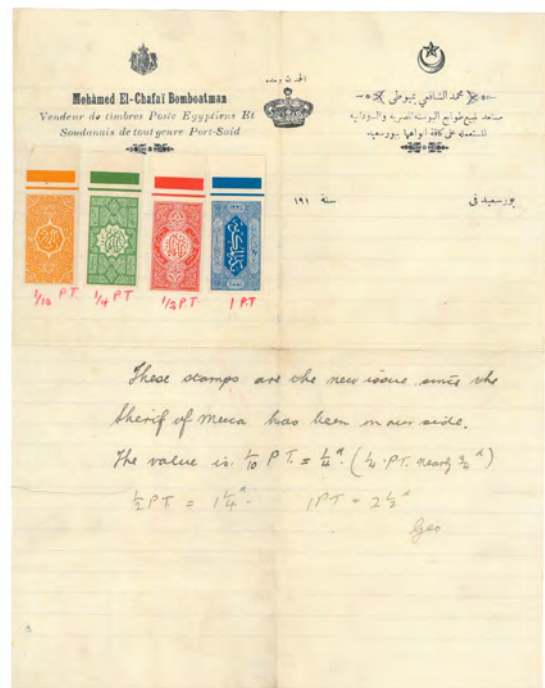 الحمد لله وحده
Mohamed El-Chafaï Bomboatman
Vendeur de timbres Poste Egyptiens Et
Soudanais de tout genre Port-Saïd
محمد الشافعي بمبوطى
مستعد لبيع طوابع البوسته المصريه والسودانيه
المستعمله على كافة انواعها ببورسعيد
بورسعيد فى سنة ١٩١
1/10 P.T.
1/4 P.T
1/2 P.T
1 P.T
These stamps are the new issue since the
Sherif of Mecca has been on our side.
The value is. 1/10 P T. = 1/4 d. (1/4 . PT. nearly 3/4 d)
1/2 PT. = 1 1/4 d. 1PT = 2 1/2 d
Geo